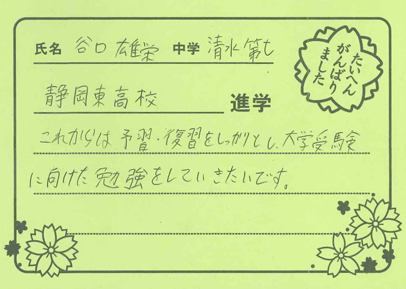 氏名 谷口 雄栄 中学 清水第七
たいへん
がんばり
ました
静岡東高校 進学
これからは予習・復習をしっかりとし、大学受験
に向けた勉強をしていきたいです。